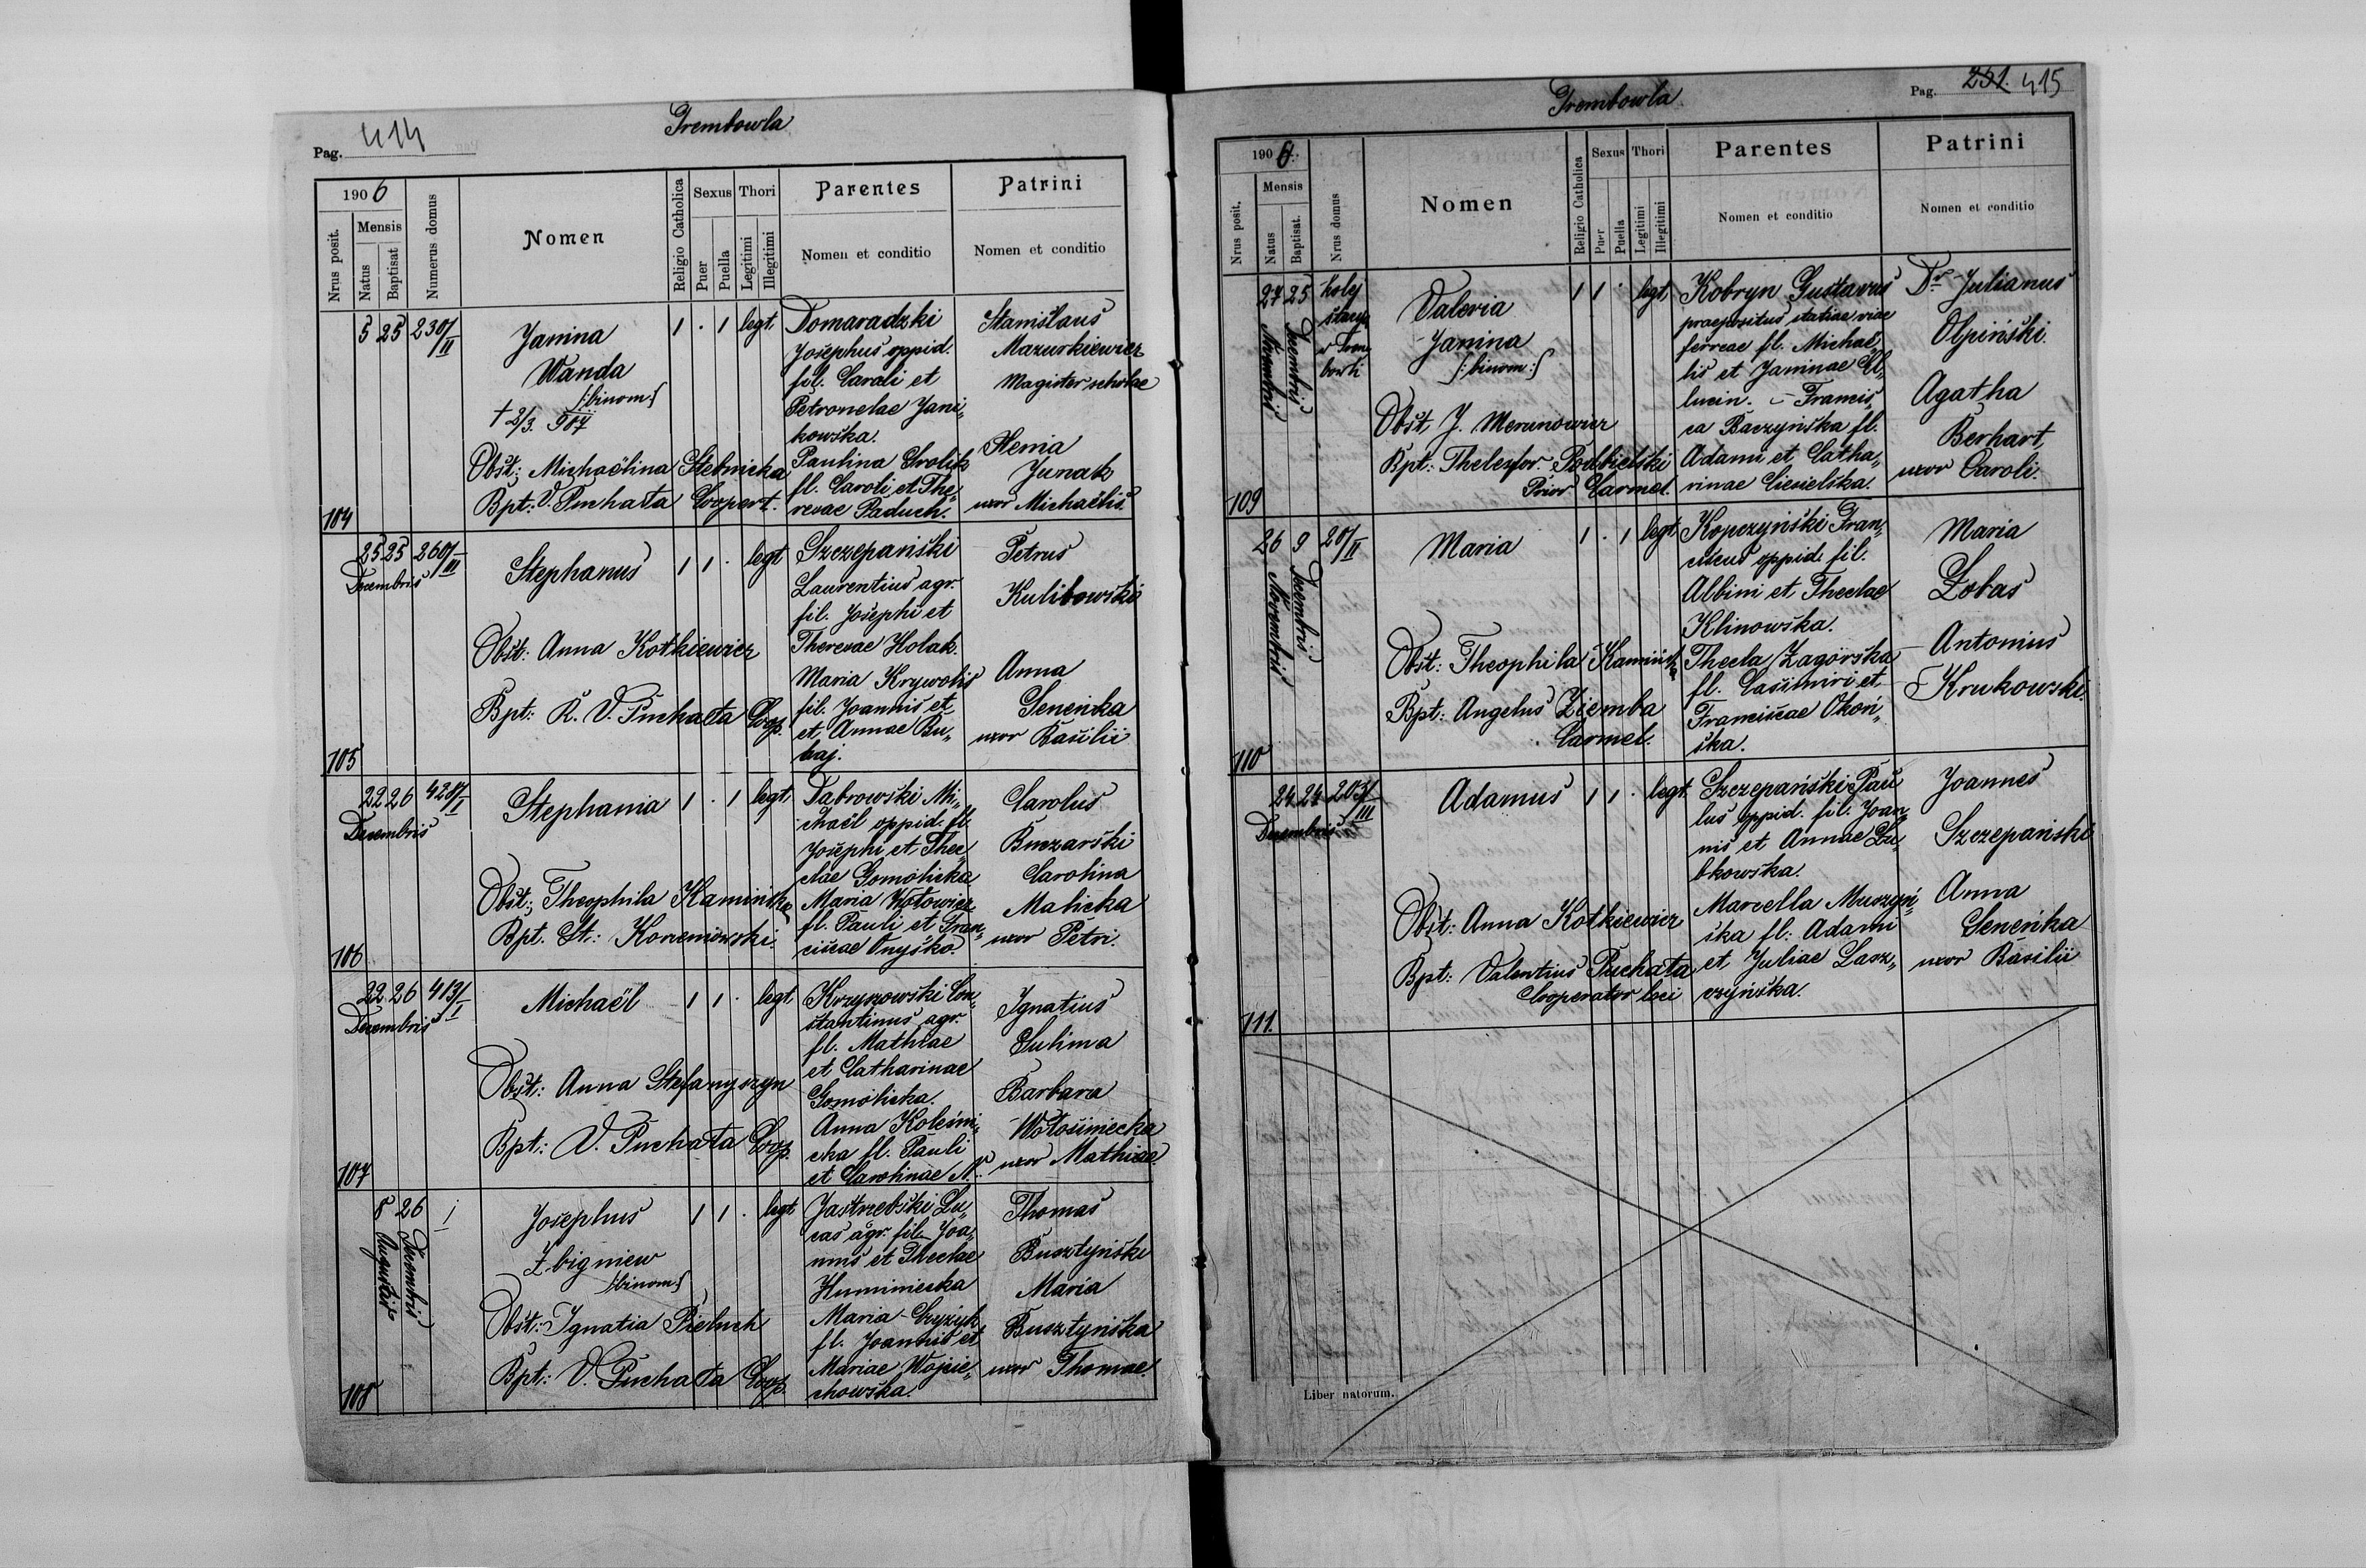 Trembowla
Pag. 414
1906
Nrus posit.
Mensis
Natus
Baptisat
Numerus domus
Nomen
Religio Catholica
Sexus
Puer
Puella
Thori
Legitimi
Illegitimi
Parentes
Nomen et conditio
Patrini
Nomen et conditio
104
5 25 230/II
Janina
Wanda
/:binom:/
† 2/3. 907
Obst: Michaëlina Stebnicka
Bpt: V. Puchata Coopert.
1 . 1 legt
Domaradzki
Josephus oppid.
fil. Caroli et
Petronelae Jani„
kowska.
Paulina Grolik
fl. Caroli et The„
resae Paduch.
Stanislaus
Mazurkiewicz
magister scholae
Henia
Junak
uxor Michaëlis.
105
25 25 260/III
Decembris
Stephanus
Obst: Anna Kotkiewicz
Bpt: R. V. Puchata Coop.
1 1 . legt
Szczepański
Laurentius agr.
fil. Josephi et
Theresae Holak.
Maria Krywolis
fil. Joannis et
et Annae Bu„
haj.
Petrus
Kulibowski
Anna
Seneńka
uxor Basilii
106
22 26 428/I
Decembris
Stephania
Obst: Theophila Kamińska
Bpt. St: Korzeniowski
1 . 1 legt
Dabrowski Mi„
chaël oppid. fl.
Josephi et Thec„
lae Gomólicka
Maria Wołowicz
fl. Pauli et Fran„
ciscae Onyśko.
Carolus
Buczarski
Carolina
Malicka
uxor Petri.
107
22 26 413/I
Decembris
Michaël
Obst: Anna Stefanyszyn
Bpt: V. Puchata Coop.
1 1 . legt
Krzyszowski Con„
stantinus agr.
fl. Mathiae
et Catharinae
Gomólicka.
Anna Koleśni„
cka fl. Pauli
et Carolinae N.
Ignatius
Sulima
Barbara
Wołosiniecka
uxor Mathiae.
108
8 26
Augusti
Decembris
Josephus
Zbigniew
/:binom:/
Obst: Ignatia Pieluch
Bpt: V. Puchata Coop.
1 1 . legt
Jastrzebski Lu„
cas agr. fil. Joa„
nnis et Theclae
Huminiecka
Maria Czyżyk
fl. Joannis et
Mariae Wojcie„
chowska.
Thomas
Busztyński
Maria
Busztyńska
uxor Thomae.
Trembowla
Pag. 251. 415
1906.
Nrus posit.
Mensis
Natus
Baptisat.
Nrus domus
Nomen
Religio Catholica
Sexus
Puer
Puella
Thori
Legitimi
Illegitimi
Parentes
Nomen et conditio
Patrini
Nomen et conditio
109
27 25
Novembris
Decembris
kolej
stacya
w Trem
bowli
Valeria
Janina
/:binom:/
Obst J. Merunowicz
Bpt: Thelesfor. Podbielski
Prior Carmel.
1 1 . legt.
Kobryn Gustavus
praepositus statiae viae
ferreae fl. Michaë„
lis et Janinae
Francis„
ca Baczyńska fl.
Adami et Catha„
rinae Ciesielska.
Dr Julianus
Olpiński.
Agatha
Berhart
uxor Caroli.
110
26 9 20/II
Novembris
Decembris
Maria
Obst: Theophila Kamińska
Bpt: Angelus Ziemba
Carmel.
1 . 1 legt
Kopczyński Fran„
ciscus oppid. fil.
Albini et Theclae
Klinowska.
Thecla Zagórska
fl. Casimiri et
Franciscae Okoń„
ska.
Maria
Zobas
Antonius
Krukowski.
111.
24 24 203/III
Decembris
Adamus
Obst: Anna Kotkiewicz
Bpt: Valentius Puchata
Cooperator loci
1 1 . legt.
Szczepański Pau
lus oppid. fil. Joan„
nis et Annae Lu„
bkowska.
Marcella Muszyń„
ska fl. Adami
et Juliae Lasz„
czyńska.
Joannes
Szczepański
Anna
Seneńka
uxor Basilii
Liber natorum.